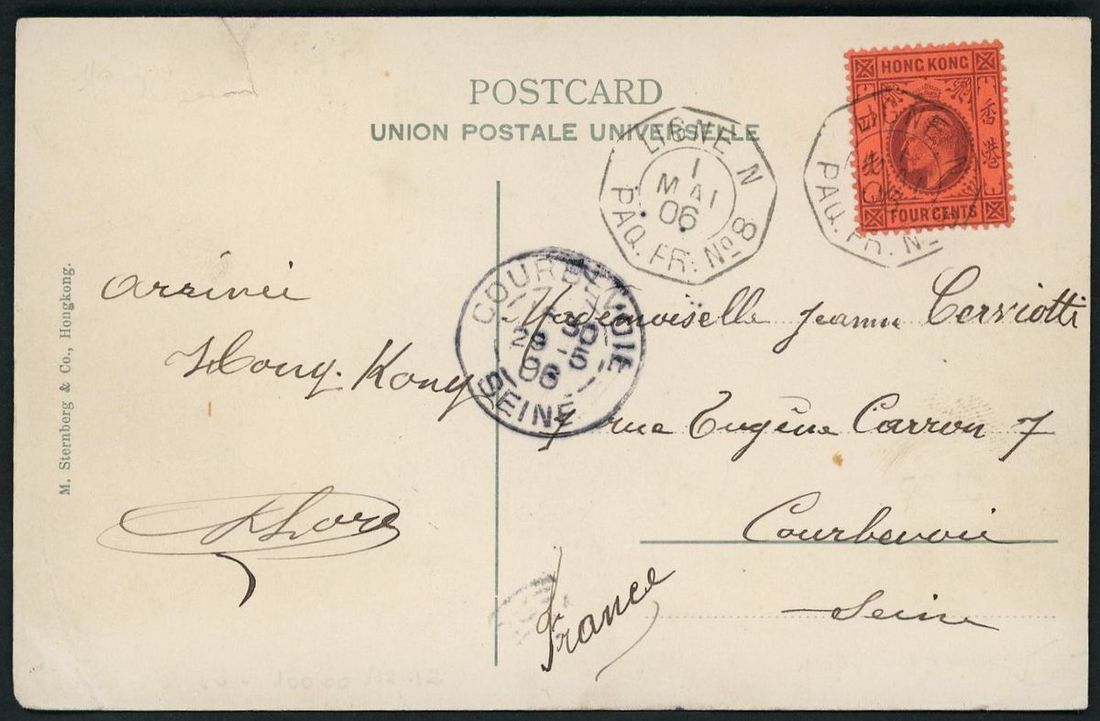 POSTCARD
UNION POSTALE UNIVERSELLE
HONG KONG
香港
FOUR CENTS
LIGNE N
1
MAI
06
PAQ. FR. No 8
LIGNE N
PAQ. FR. No
COURBEVOIE
29 -5
06
SEINE
M. Sternberg & Co., Hongkong.
arrivée
Hong. Kong
Mademoiselle Jeanne Cerviotti
7 rue Eugène Carron 7
Courbevoie
Seine
France